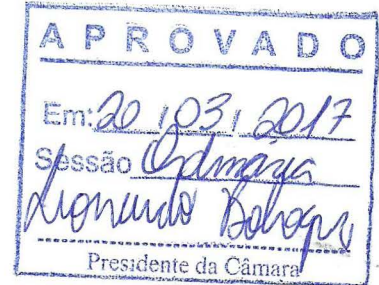 APROVADO
Em: 20 / 03 / 2017
Sessão Ordinária
Leonardo
Presidente da Câmara